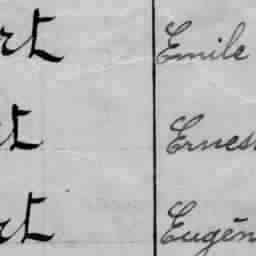 rt Emile
t Ernes
rt Eugén